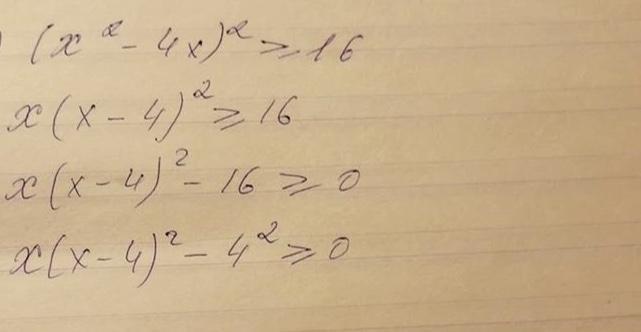 ) (x² - 4x)² ⩾ 16
x(x - 4)² ⩾ 16
x(x-4)² - 16 ⩾ 0
x(x-4)² - 4² ⩾ 0